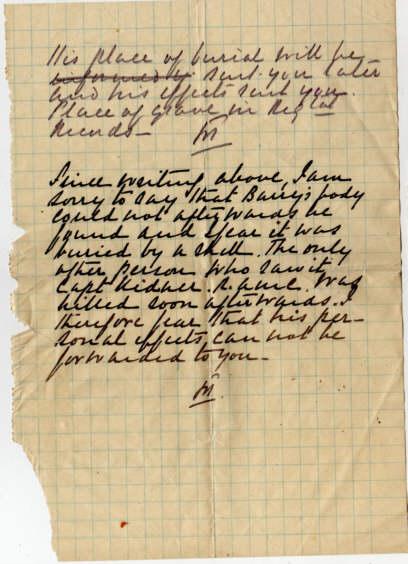 His place of burial will be
informed by sent you later
and his effects sent you.
Place of grave in Regtal
Records—
M
Since writing above, I am
sorry to say that Barry's body
could not afterwards be
found and I fear it was
buried by a shell. The only
other person who saw it
Capt. R.A.M.C. was
killed soon afterwards. I
therefore fear that his per-
sonal effects cannot be
forwarded to you—
M